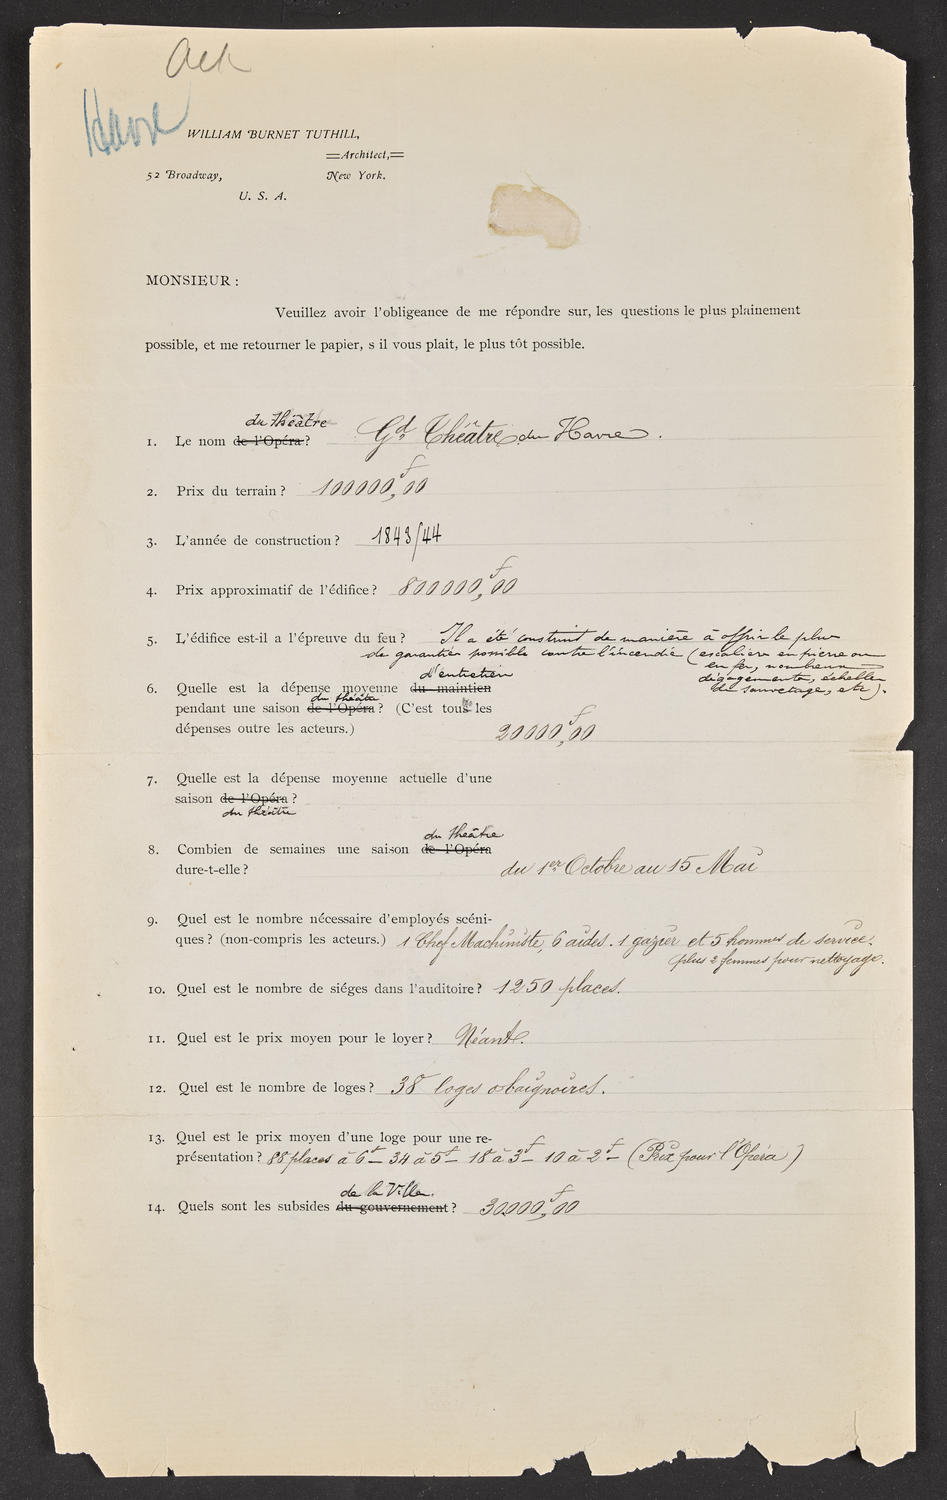 Ack
Havre
WILLIAM BURNET TUTHILL,
Architect,
52 Broadway, New York.
U. S. A.
MONSIEUR:
Veuillez avoir l'obligeance de me répondre sur, les questions le plus plainement
possible, et me retourner le papier, s il vous plait, le plus tôt possible.
du théâtre
1. Le nom de l'Opéra? Gd Théâtre du Havre.
2. Prix du terrain? 100000,f00
3. L'année de construction? 1843/44
4. Prix approximatif de l'édifice? 800000,f00
5. L'édifice est-il a l'épreuve du feu? Il a été construit de manière à offrir le plus
de garanties possible contre l'incendie (escaliers en pierre ou
en fer, nombreux
dégagements, échelles
de sauvetage, etc).
d'entretien
6. Quelle est la dépense moyenne du maintien
du théâtre
pendant une saison de l'Opéra? (C'est tous les
dépenses outre les acteurs.) 20000,f00
7. Quelle est la dépense moyenne actuelle d'une
saison de l'Opéra?
du théâtre
du théâtre
8. Combien de semaines une saison de l'Opéra
dure-t-elle? du 1er Octobre au 15 Mai
9. Quel est le nombre nécessaire d'employés scéni-
ques? (non-compris les acteurs.) 1 Chef Machiniste, 6 aides. 1 gazier et 5 hommes de service.
plus 2 femmes pour nettoyage.
10. Quel est le nombre de siéges dans l'auditoire? 1250 places.
11. Quel est le prix moyen pour le loyer? Néant.
12. Quel est le nombre de loges? 38 loges baignoires.
13. Quel est le prix moyen d'une loge pour une re-
présentation? 88 places à 6f 34 à 5f 18 à 3f 10 à 2f (Prix pour l'Opéra)
de la Ville.
14. Quels sont les subsides du gouvernement? 30000,f00